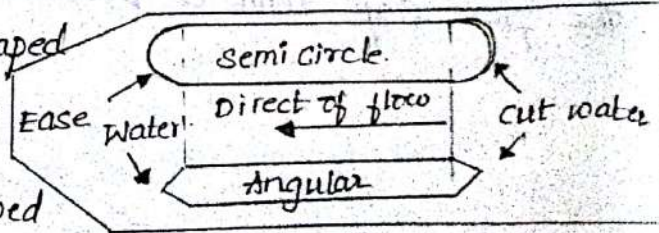 aped
semi circle.
Ease Water
Direct of flow
cut water
Angular
ped